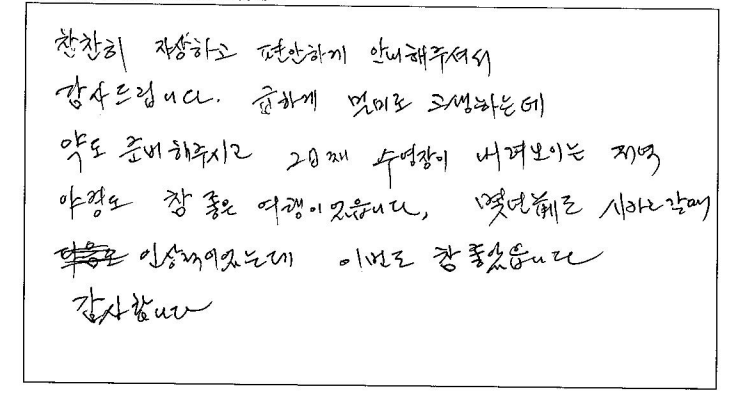 찬찬히 자상하고 편안하게 안내해주셔서
감사드립니다. 급하게 멀미로 고생하는데
약도 준비해주시고 2일째 수영장이 내려보이는 저녁
야경도 참 좋은 여행이었읍니다, 몇년前에도 갈때
인상적이었는데 이번도 참 좋았읍니다
감사합니다